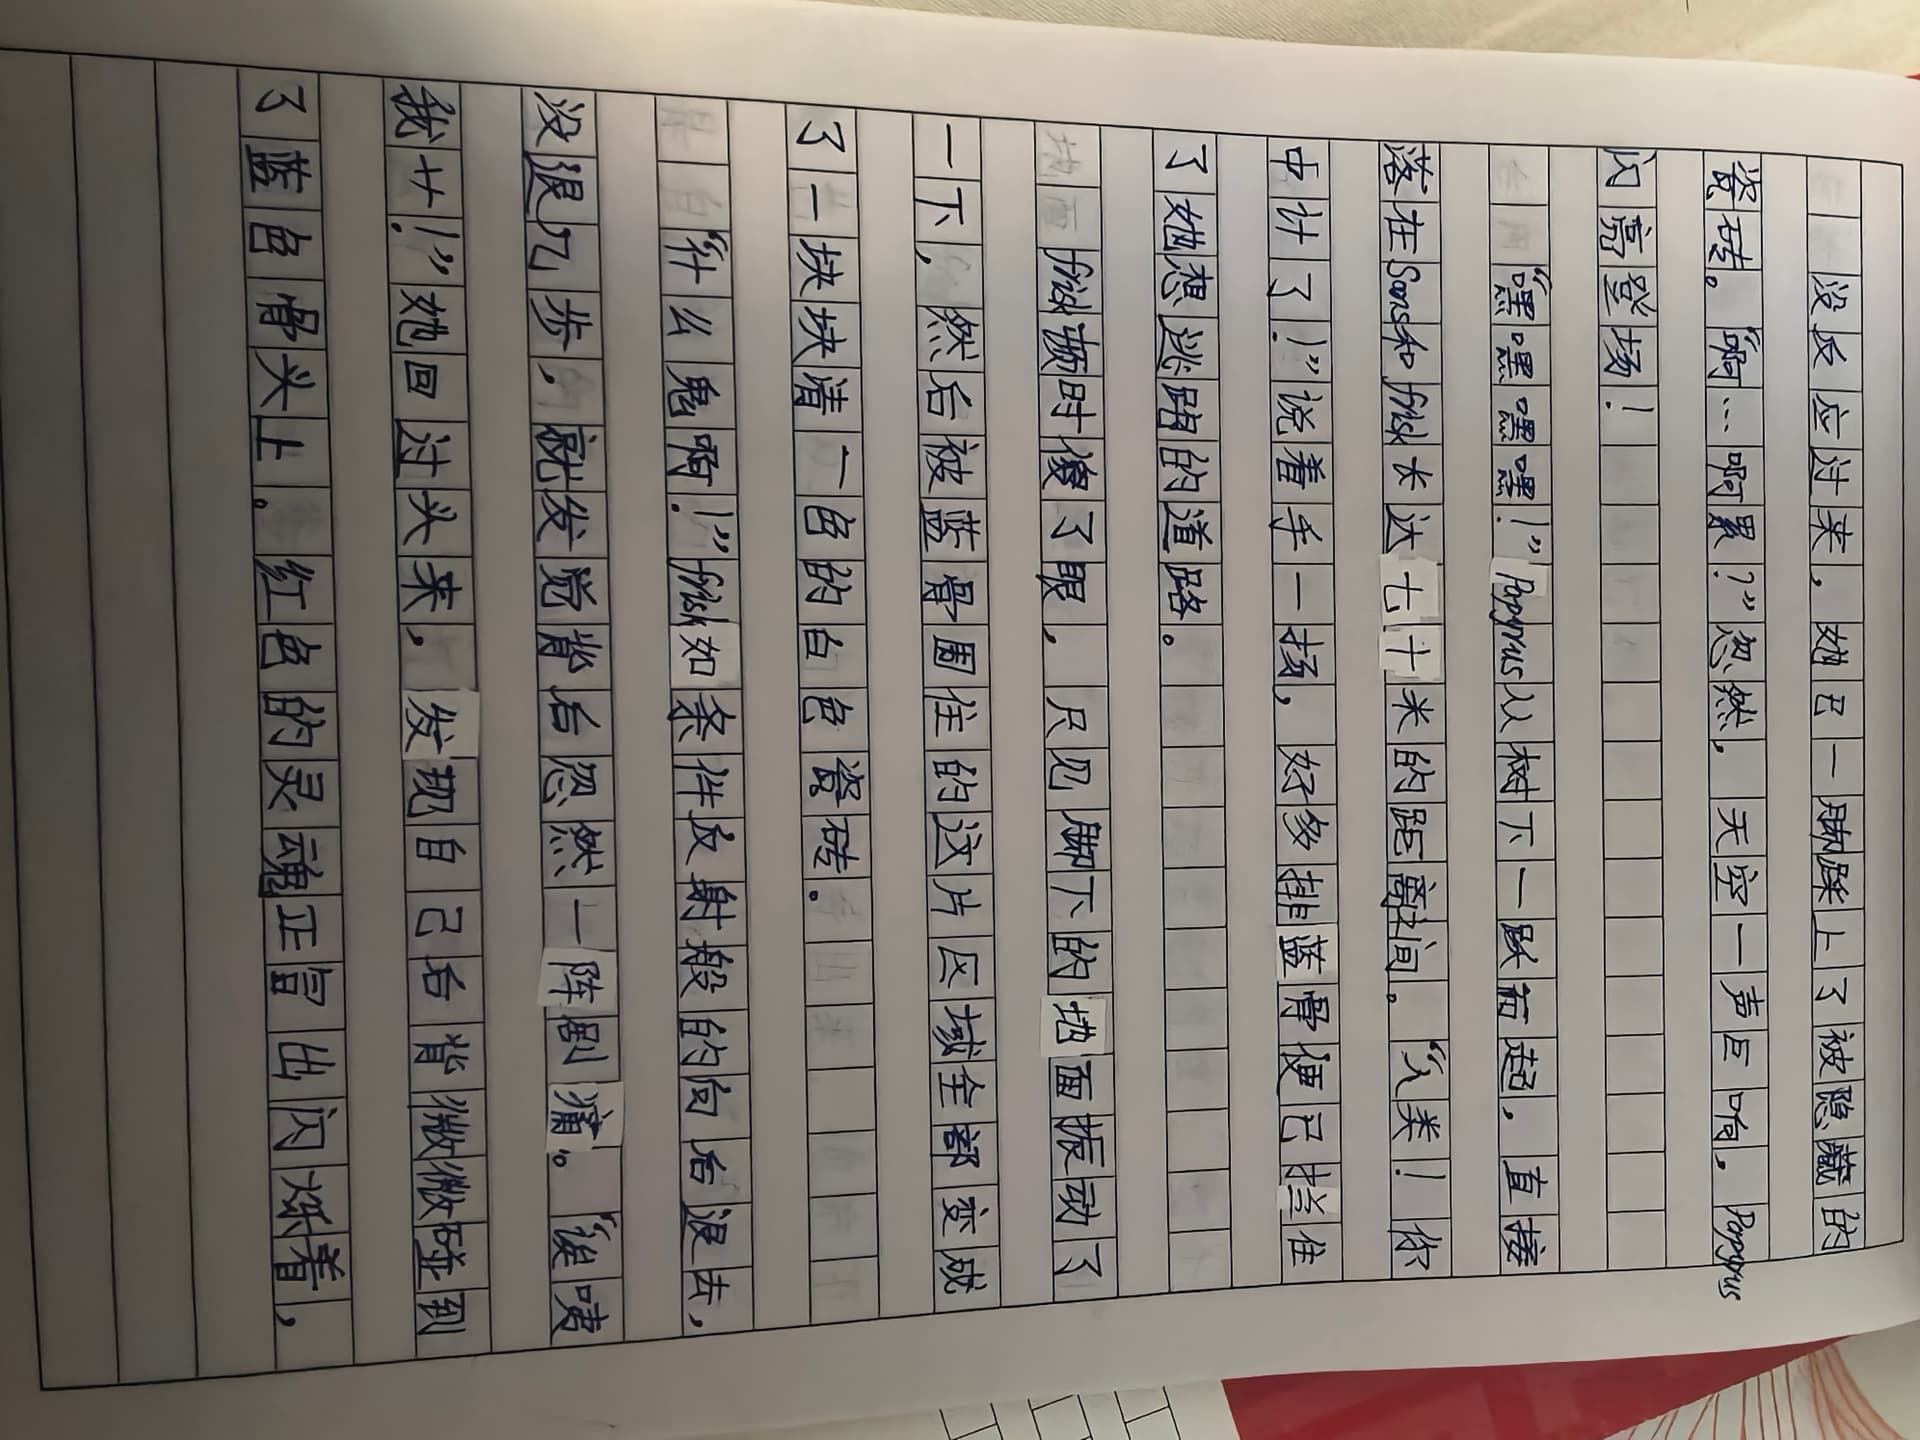 没反应过来，她已一脚踩上了被隐藏的
瓷砖。“啊…啊累？”忽然，天空一声巨响，Papyrus
闪亮登场！
“嘿嘿嘿嘿！”Papyrus从树下一跃而起，直接
落在Sans和frisk长达七十米的距离之间。“人类！你
中计了！”说着手一扬，好多排蓝骨便已拦住
了她想逃跑的道路。
frisk顿时傻了眼，只见脚下的地面振动了
一下，然后被蓝骨围住的这片区域全部变成
了一块块清一色的白色瓷砖。
“什么鬼啊！”frisk如条件反射般的向后退去，
没退几步，就发觉背后忽然一阵剧痛。“诶唛
我艹！”她回过头来，发现自己后背微微碰到
了蓝色骨头上。红色的灵魂正冒出闪烁着，